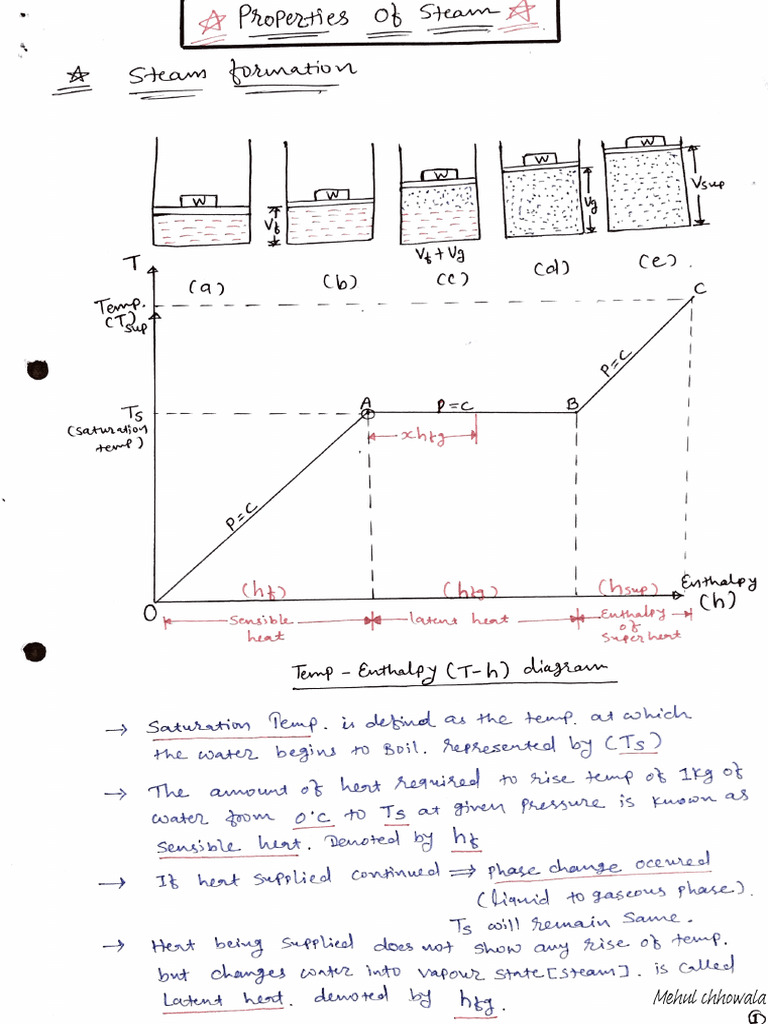 ☆ Properties Of Steam ☆
☆ Steam formation
W
W
W
W
W
Vf
Vf + Vg
Vg
Vsup
(a)
(b)
(c)
(d)
(e).
T
Temp.
(T)sup
C
P=C
Ts
(saturation
temp)
A
P=C
B
xhfg
P=C
O
(hf)
(hfg)
(hsup)
Enthalpy
(h)
Sensible
heat
latent heat
Enthalpy
of
Superheat
Temp - Enthalpy (T-h) diagram
→ Saturation Temp. is defind as the temp. at which
the water begins to Boil. represented by (Ts)
→ The amount of heat required to rise temp of 1Kg of
water from 0°C to Ts at given pressure is known as
Sensible heat. Denoted by hf
→ If heat supplied continued ⇒ phase change occured
(liquid to gaseous phase).
Ts will remain same.
→ Heat being supplied does not show any rise of temp.
but changes water into vapour state [steam]. is called
Latent heat. denoted by hfg.
Mehul chhowala
1